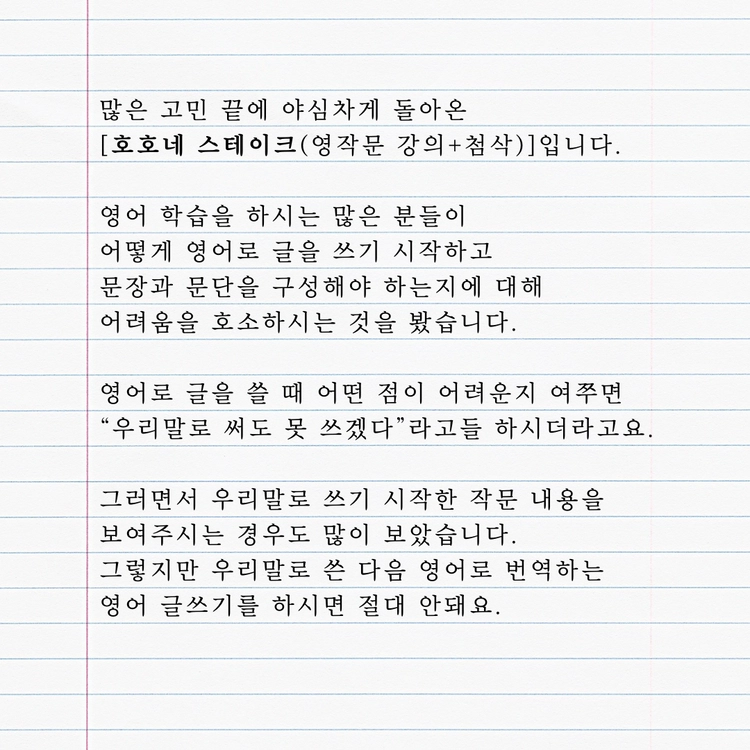 많은 고민 끝에 야심차게 돌아온
[호호네 스테이크(영작문 강의+첨삭)]입니다.
영어 학습을 하시는 많은 분들이
어떻게 영어로 글을 쓰기 시작하고
문장과 문단을 구성해야 하는지에 대해
어려움을 호소하시는 것을 봤습니다.
영어로 글을 쓸 때 어떤 점이 어려운지 여쭈면
“우리말로 써도 못 쓰겠다”라고들 하시더라고요.
그러면서 우리말로 쓰기 시작한 작문 내용을
보여주시는 경우도 많이 보았습니다.
그렇지만 우리말로 쓴 다음 영어로 번역하는
영어 글쓰기를 하시면 절대 안돼요.